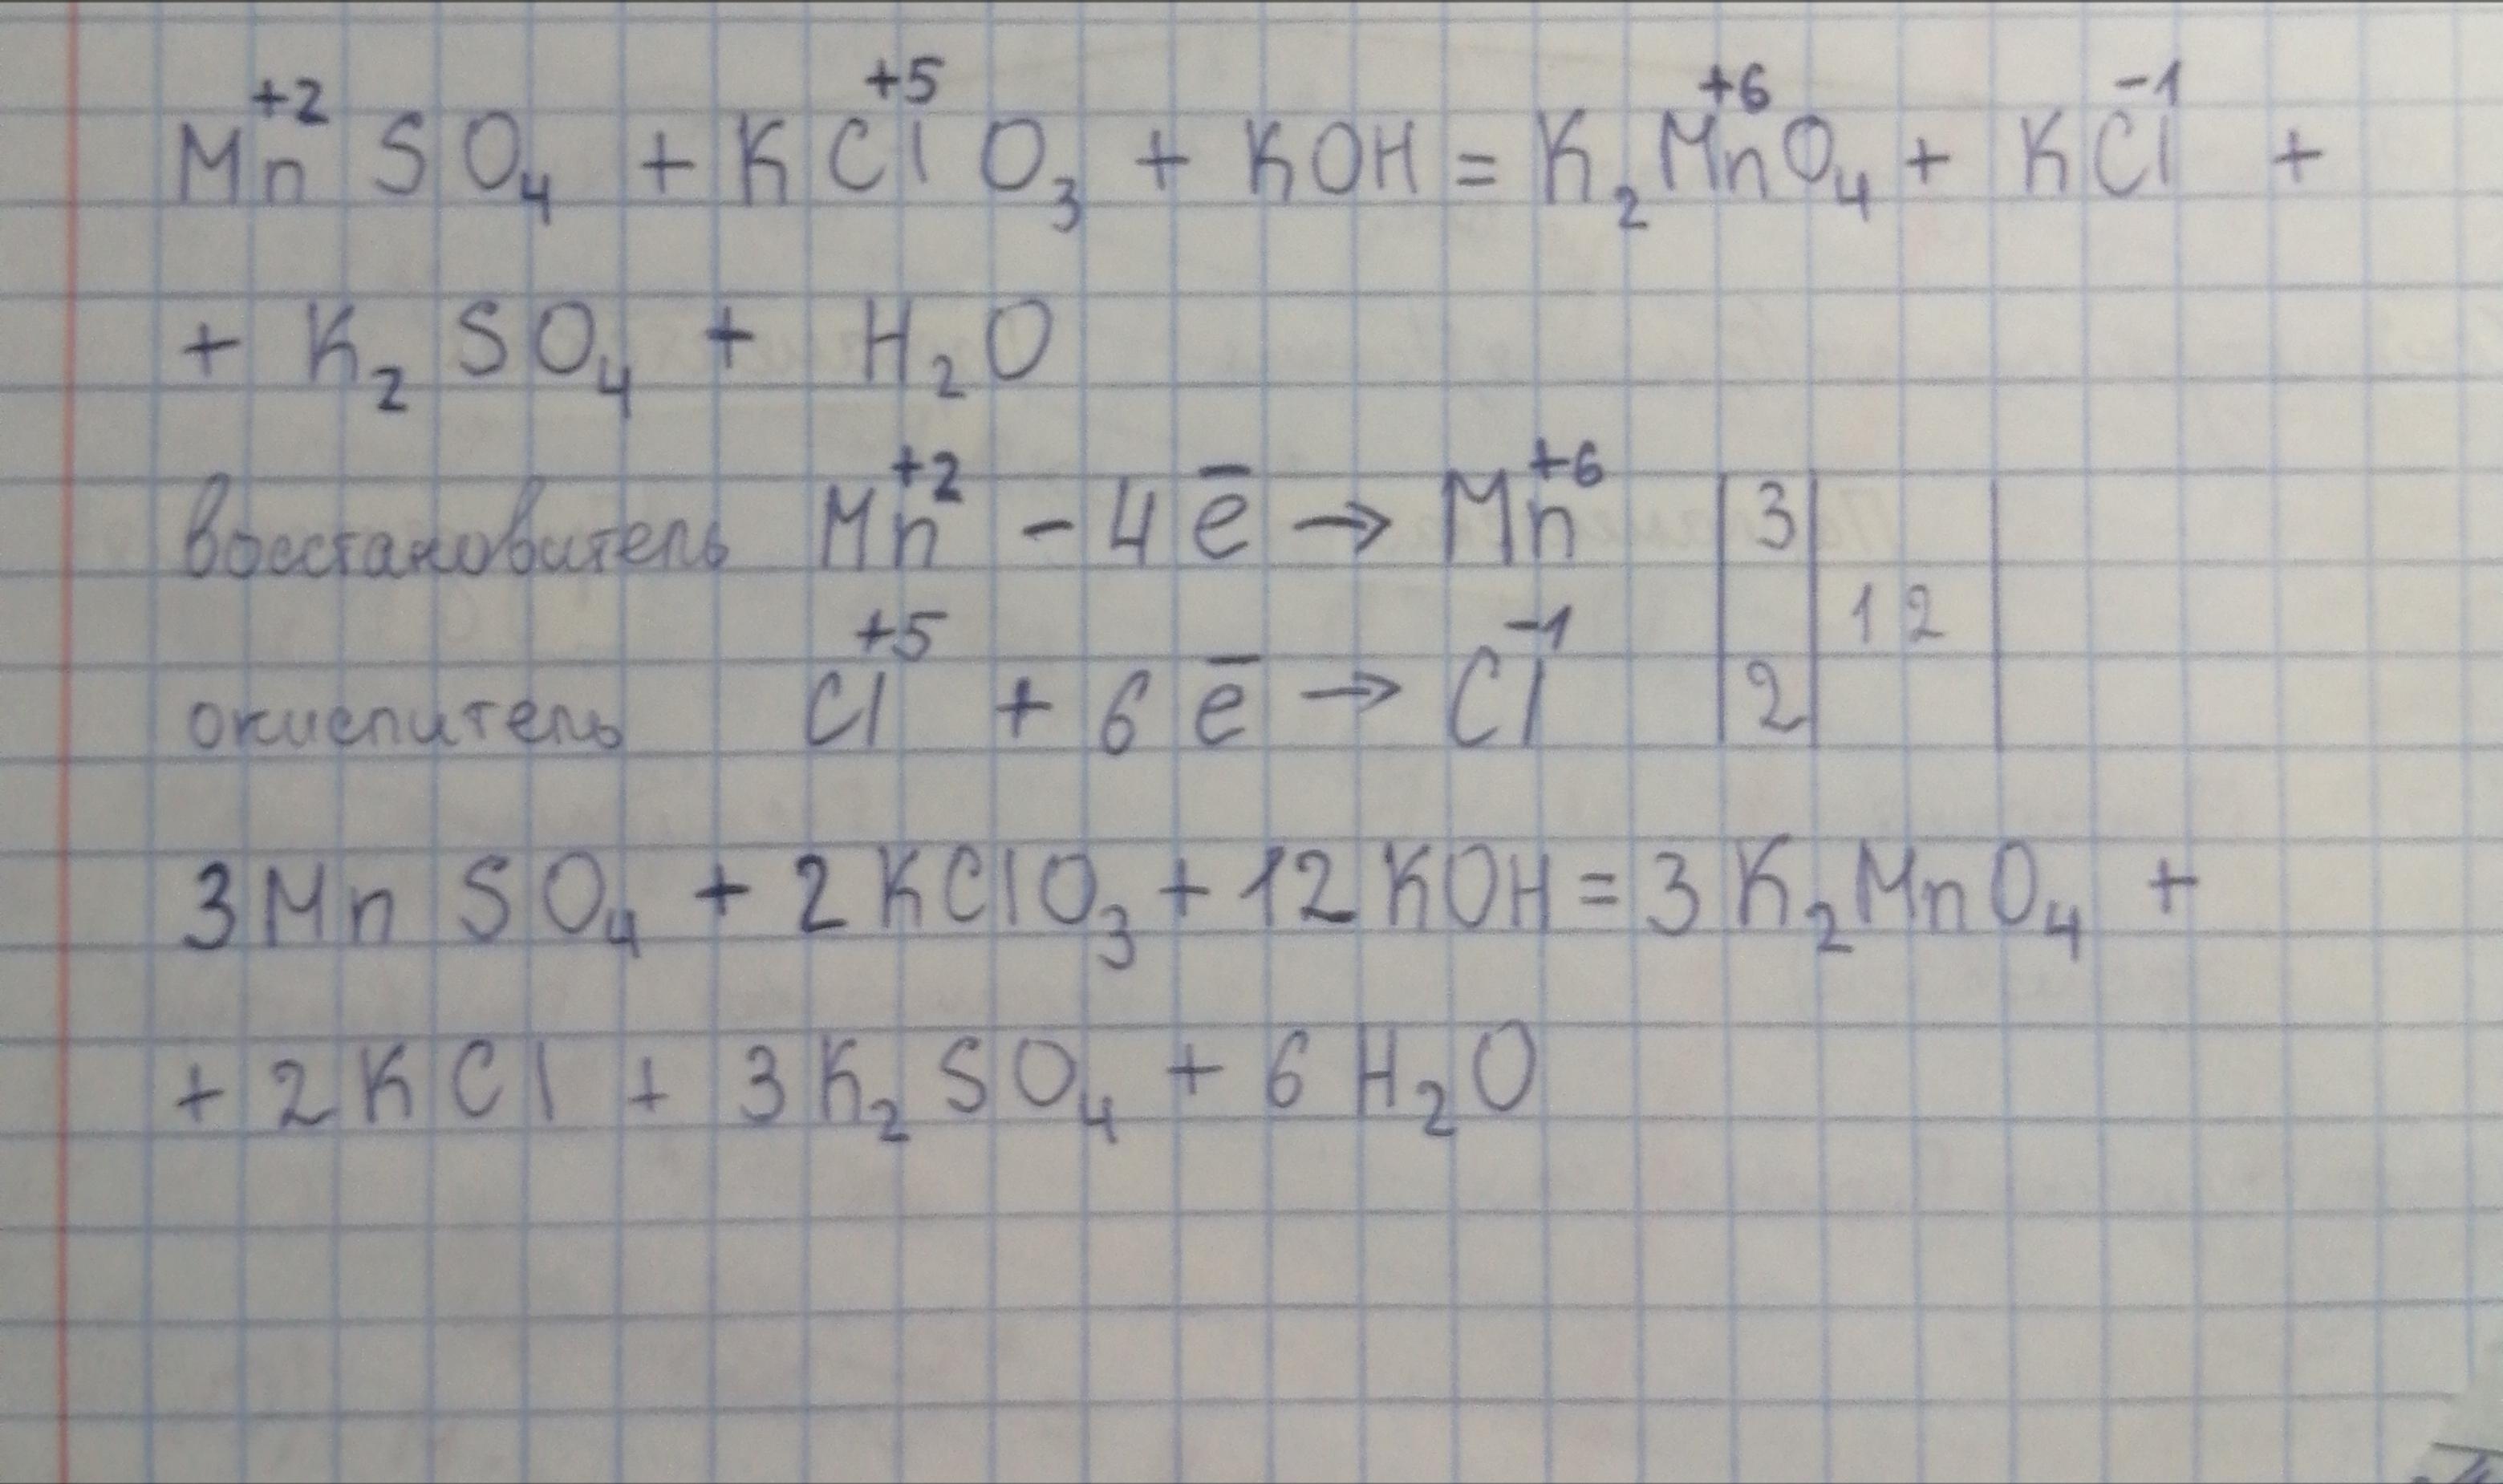 Mn⁺² SO₄ + KCl⁺⁵O₃ + KOH = K₂Mn⁺⁶O₄ + KCl⁻¹ +
+ K₂SO₄ + H₂O
восстановитель Mn⁺² - 4ē → Mn⁺⁶ | 3 |
12 |
окислитель Cl⁺⁵ + 6ē → Cl⁻¹ | 2 |
3MnSO₄ + 2KClO₃ + 12KOH = 3K₂MnO₄ +
+ 2KCl + 3K₂SO₄ + 6H₂O